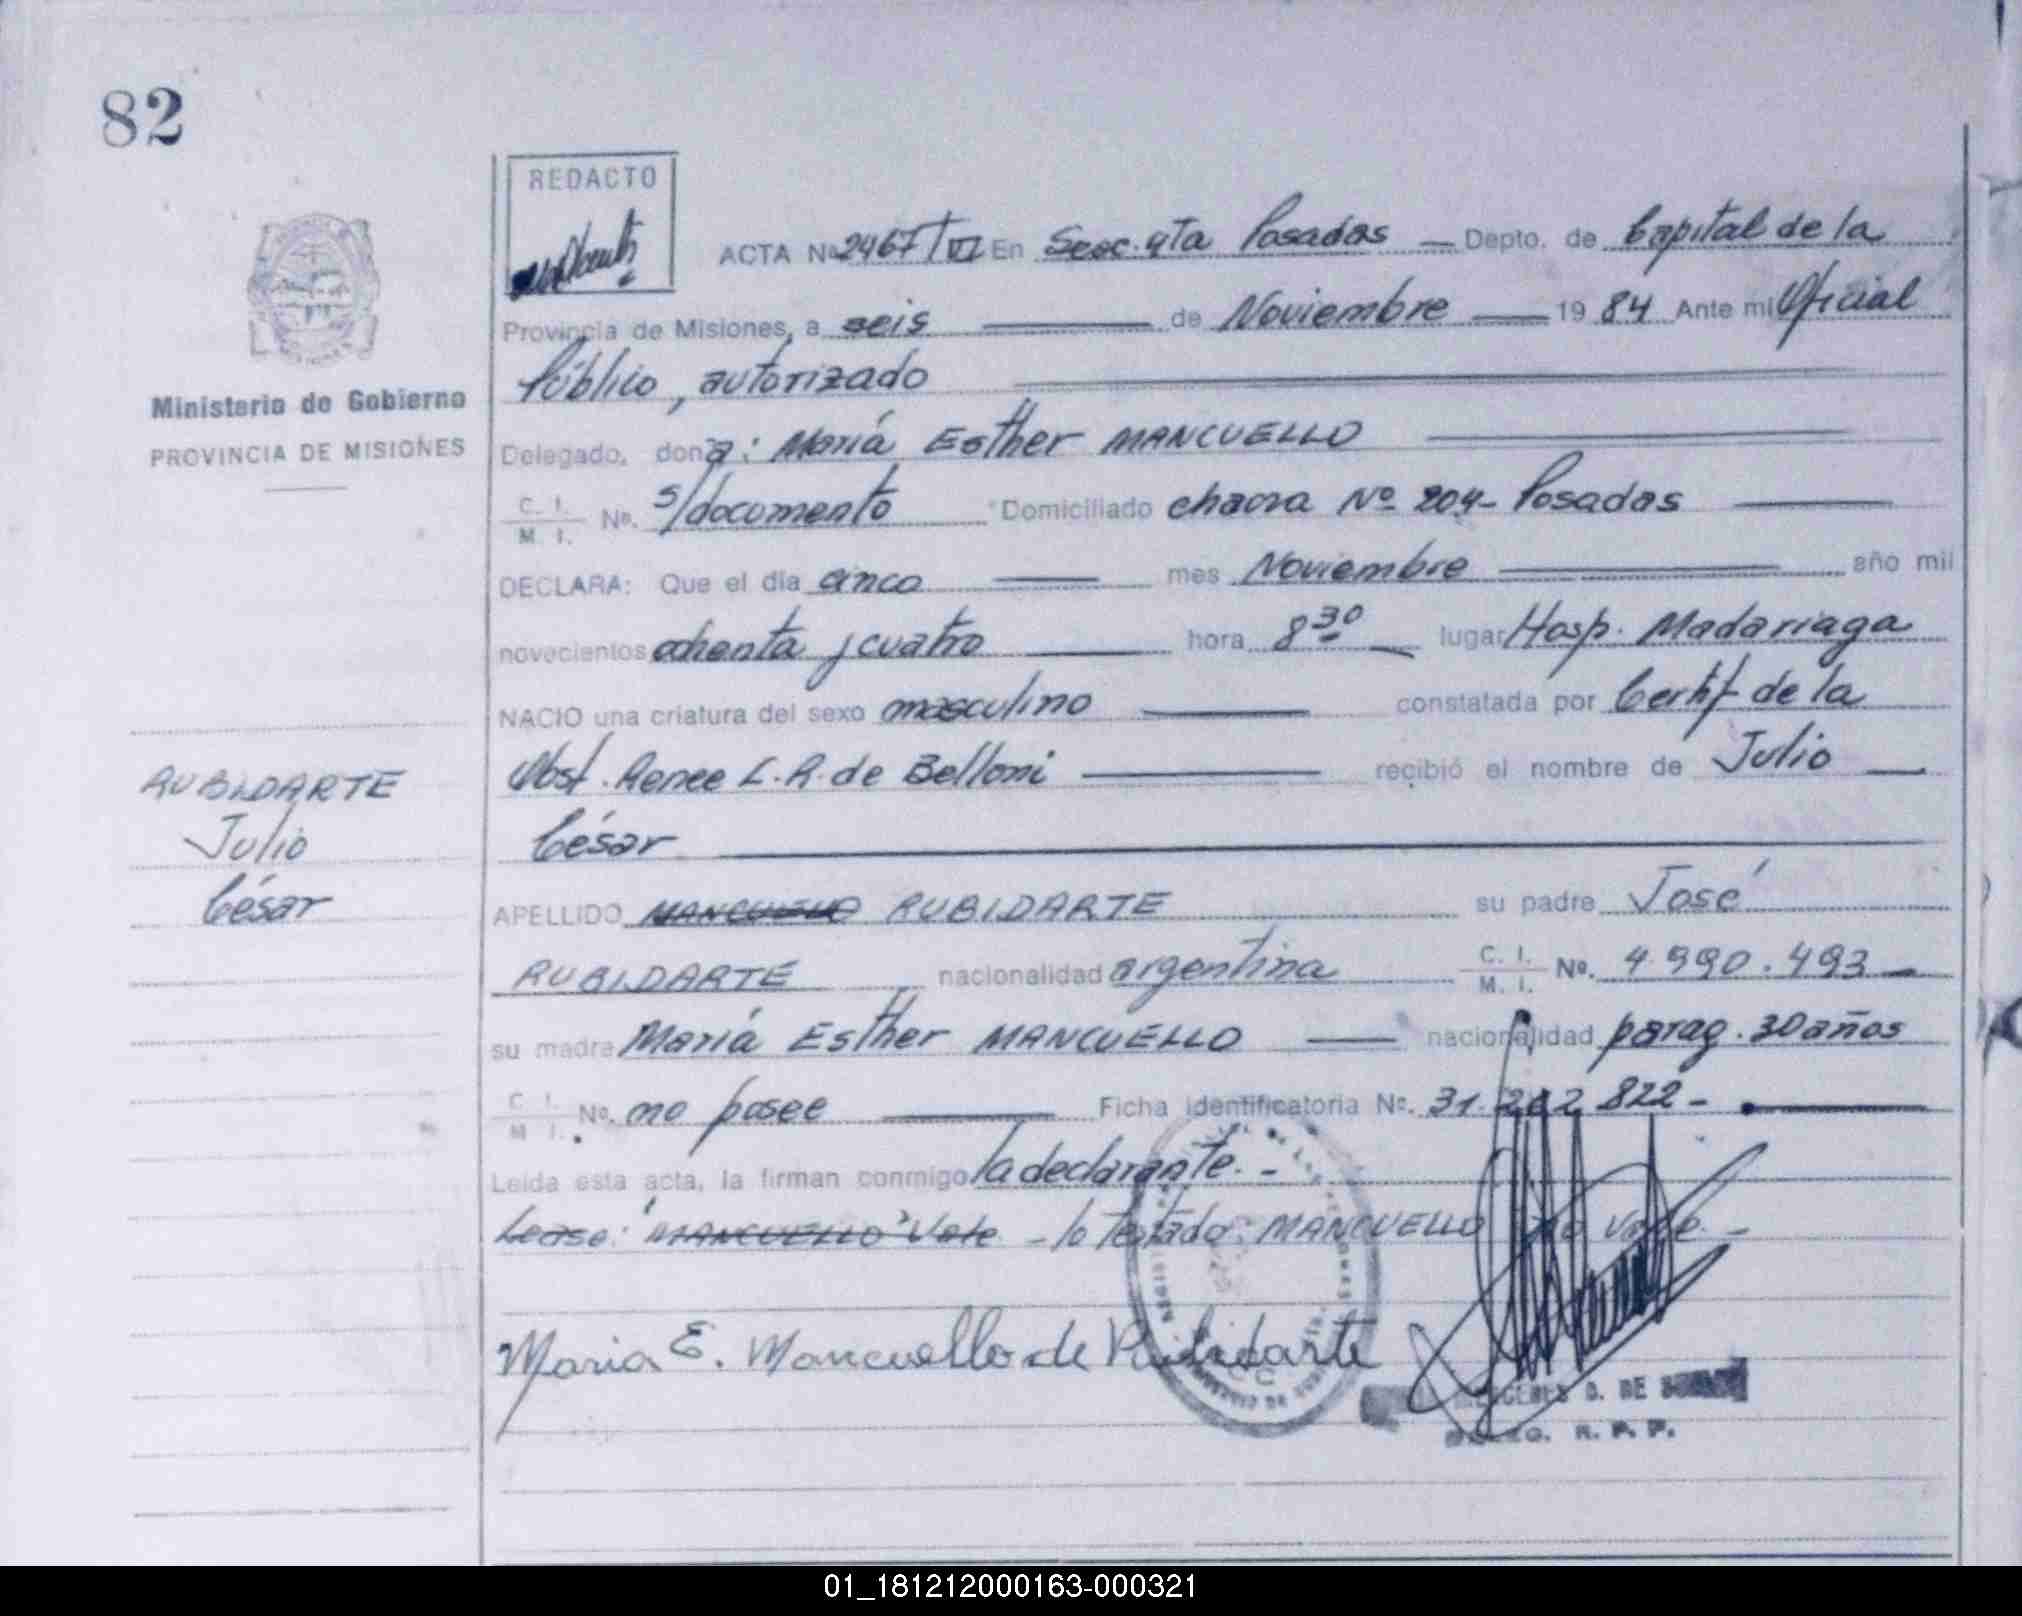 82
REDACTO
Ministerio de Gobierno
PROVINCIA DE MISIONES
ACTA Nº 2467/VI En Secc. 4ta Posadas — Depto. de Capital de la
Provincia de Misiones, a seis de Noviembre 1984 Ante mi Oficial
Público, autorizado
Delegado, don a: María Esther MANCUELLO
C. I. M. I. No. s/documento Domiciliado chacra Nº 204- Posadas
DECLARA: Que el día cinco mes Noviembre año mil
novecientos ochenta y cuatro hora 8 30 lugar Hosp. Madariaga
NACIO una criatura del sexo masculino constatada por Certif de la
Obst. Renee L. R. de Belloni recibió el nombre de Julio
César
RUBIDARTE
Julio
César
APELLIDO MANCUELLO RUBIDARTE su padre José
RUBIDARTE nacionalidad argentina C. I. M. I. No. 4.990.493
su madre María Esther MANCUELLO nacionalidad parag. 30 años
C. I. M. I. No. no posee Ficha identificatoria No. 31.202.822-
Leída esta acta, la firman conmigo la declarante.-
Lease: "MANCUELLO" Vale - lo testado: MANCUELLO no vale.-
Maria E. Mancuello de Rubidarte
D. DE
R. P. P.
01_181212000163-000321